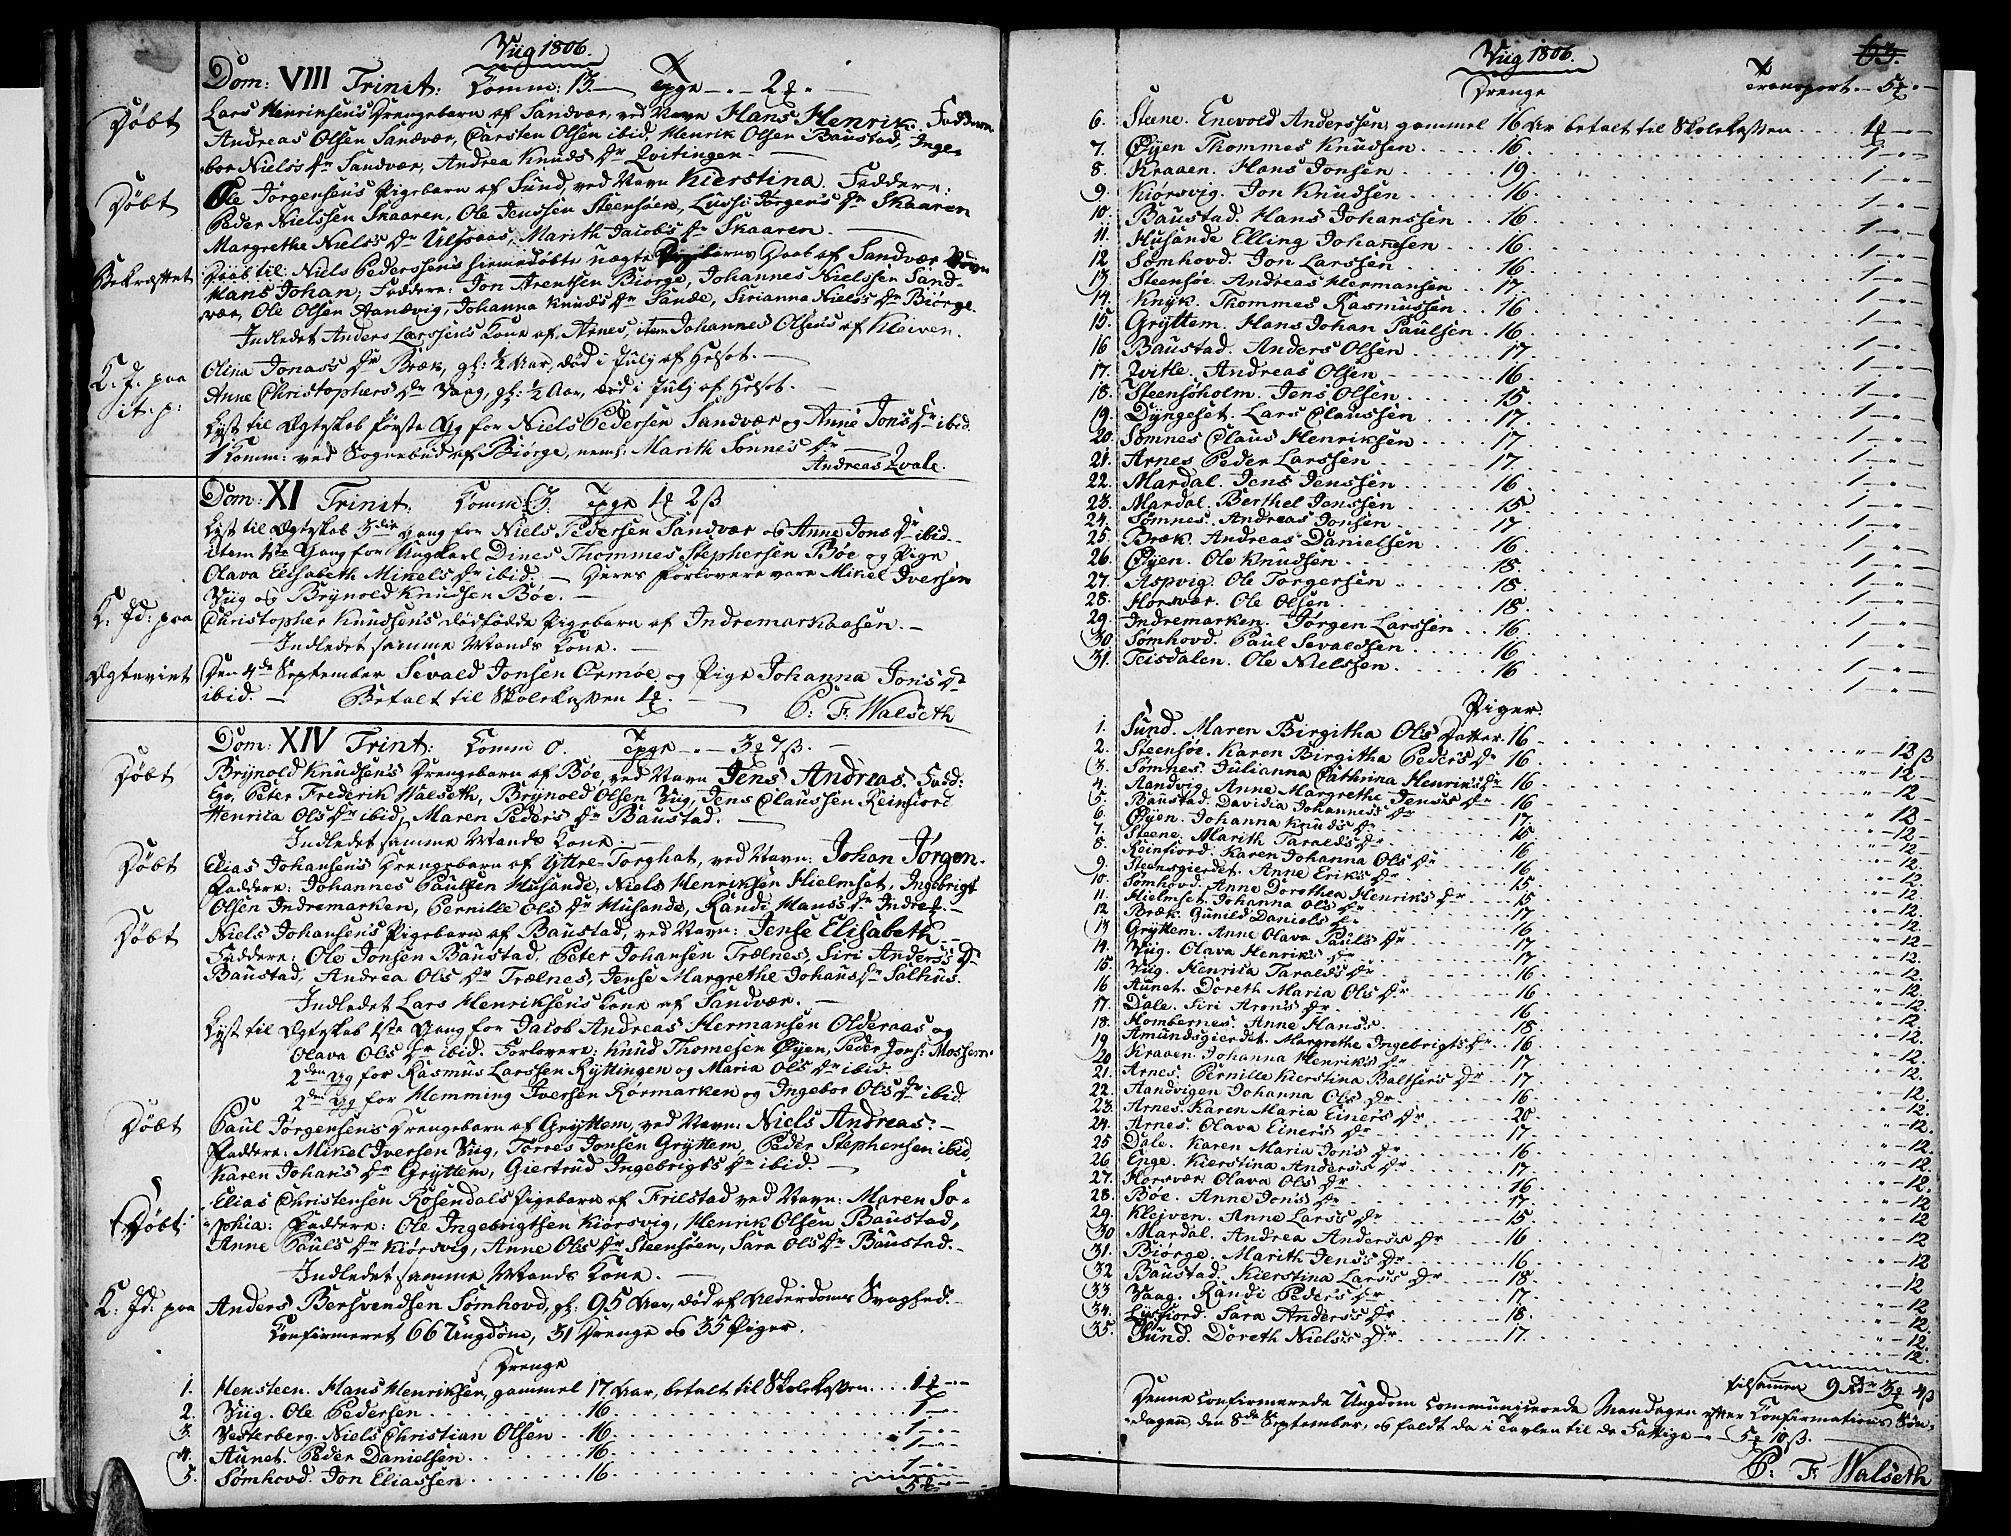 Viig 1806.
Dom: VIII Trinit: Komm: 13. — Expr — „ — 2 „ —
Døbt Lars Henriksens Drengebarn af Sandvær, ved Navn Hans Henrik. Faddere
Andreas Olsen Sandvær, Carsten Olsen ibid, Henrik Olsen Baustad, Inge-
bor Niels's Dr Sandvær, Andrea Knuds Dr Qvitingen. —
Døbt Ole Jørgensen's Pigebarn af Sund, ved Navn Kierstina. Faddere:
Peder Nielssen Skaaren, Ole Jenssen Steensøen, Lussi Jørgens Dr Skaaren
Margrethe Niels's Dr Ulfsaas, Marith Jacobs Dr Skaaren. —
Bekræftet Daab til: Niels Pederssen's hiemedøbte uægte Daab af Sandvær Navn
Hans Johan, Faddere: Jon Arentsen Biørge, Johannes Nielssen Sand-
vær, Ole Olsen Aandvig, Johanna Knud's Dr Sande, Sirianna Niels's Dr Biørge.
Indledet Anders Larssens Kone af Arnes, item Johannes Olsens af Kleiven.
K: J: paa Olina Jonas's Dr Bræk, gl: ½ Aar, død i Julj af Helsot. —
it: p: Anne Christophers Dr Vaag, gl: ½ Aar, død i Julj af Helsot. —
Lyst til Ægteskab første Gg for Niels Pedersen Sandvær og Anne Jons Dr ibid.
1 Komm: ved Sognebud af Biørge, neml: Marith Sonnes Dr
Andreas Qvale.
Dom: XI Trinit: Komm: 3. Expr 1 2 ß
Lyst til Ægteskab 3die Gang for Niels Pedersen Sandvær og Anne Jons Dr ibid —
item 1ste Gang for Ungkarl Dines Thommes Stephersen Bøe og Pige
Olava Elisabeth Mikels Dr ibid. — Deres Forlovere vare Mikel Iversen
Viig og Brynold Knudsen Bøe. —
K: Jd: paa Christopher Knudsen's dødfødde Pigebarn af Indremarkaasen. —
Indledet samme Mands Kone. —
Ægteviet Den 4de September Sevald Jonsen Ormøe og Pige Johanna Jons Dr
ibid. — Betalt til Skolekassen 1 . —
P: F: Walseth
Dom: XIV Trint: Komm 0. Expr — „ — 3 7 ß. —
Døbt Brynold Knudsen's Drengebarn af Bøe, ved Navn Jens Andreas. Fadd:
Peter Frederik Walseth, Brynold Olsen Viig, Jens Claussen Reinfiord
Henrica Ols Dr ibid, Maren Peders Dr Baustad. —
Indledet samme Mands Kone. —
Døbt Elias Johansen's Drengebarn af Yttre-Torghat, ved Navn: Johan Jørgen.
Faddere: Johannes Paulsen Husande, Niels Henriksen Hielmset, Ingebrigt
Olsen Indremarken, Pernille Ols Dr Husande, Randi Hans's Dr Indret. —
Døbt Niels Johansen's Pigebarn af Baustad, ved Navn: Jense Elisabeth —
Faddere: Ole Jonsen Baustad, Peter Johansen Trælnes, Siri Anders's Dr
Baustad, Andrea Ols Dr Trælnes, Jense Margrethe Johans Dr Salhus.
Indledet Lars Henriksen's Kone af Sandvær. —
Lyst til Ægteskab 1ste Gang for Jacob Andreas Hermansen Olderaas og
Olava Ols Dr ibid. Forlovere: Knud Thomesen Øyen, Peder Jons: Mosheim.
2den Gg for Rasmus Larssen Ryttingen og Maria Ols Dr ibid.
2den Gg for Hemming Iversen Rørmarken og Ingebor Ols Dr ibid
Døbt Paul Jørgensen's Drengebarn af Gryttem, ved Navn: Niels Andreas. —
Faddere: Mikel Iversen Viig, Torres Jonsen Gryttem, Peder Stephensen ibid,
Karen Johans Dr Gryttem, Giertrud Ingebrigts Dr ibid. —
Døbt: Elias Christensen Rosendals Pigebarn af Frilstad ved Navn: Maren So-
phia: Faddere: Ole Ingebrigtsen Kiørsvig, Henrik Olsen Baustad,
Anne Paul's Dr Kiørsvig, Anne Ols Dr Steensøen, Sara Ols Dr Baustad. —
Indledet samme Mands Kone. —
K: Jd: paa Anders Bersvendsen Sømhovd, gl: 95 Aar, død af Alderdoms Svaghed. —
Konfirmeret 66 Ungdom, 31 Drenge og 35 Piger.
Drenge
1. Hensteen. Hans Henriksen, gammel 17 Aar, betalt til Skolekassen . . . 1 — „ —
2. Viig. Ole Pedersen . . . 16 . . . 1 — „ —
3. Vesterberg. Niels Christian Olsen . . 16 . . . 1 — „ —
4. Aunet. Peder Danielsen . . . 16 . . . 1 — „ —
5. Sømhovd. Jon Eliassen . . . 16 . . . 1 — „ —
5 „ —
Viig 1806.
63.
Drenge Transport — 5 „ —
6. Steene. Enevold Anderssen, gammel 16 Aar betalt til Skolekassen . . . 1 — „ —
7. Øyen Thommes Knudsen . . . 16 . . . 1 — „ —
8. Kraaen. Hans Jonsen . . . 19 . . . 1 — „ —
9. Kiørsvig. Jon Knudsen . . . 16 . . . 1 — „ —
10. Baustad. Hans Johanssen . . . 16 . . . 1 — „ —
11. Husande Elling Johannsen . . . 16 . . . 1 — „ —
12. Sømhovd. Jon Larssen . . . 16 . . . 1 — „ —
13. Steensøe. Andreas Hermansen . . 17 . . . 1 — „ —
14. Knyk. Thommes Rasmussen . . 16 . . . 1 — „ —
15. Gryttem. Hans Johan Paulsen . 16 . . . 1 — „ —
16 Baustad. Anders Olsen . . . 17 . . . 1 — „ —
17. Qvitle. Andreas Olsen . . . 16 . . . 1 — „ —
18. Steensøholm. Jens Olsen . . . 15 . . . 1 — „ —
19. Dyngeset. Lars Claussen . . . 17 . . . 1 — „ —
20. Sømnes Claus Henriksen . . . 17 . . . 1 — „ —
21. Arnes Peder Larssen . . . 17 . . . 1 — „ —
22. Mardal. Jens Jenssen . . . 16 . . . 1 — „ —
23. Mardal. Berthel Jenssen . . . 15 . . . 1 — „ —
24. Sømnes. Andreas Jonsen . . . 17 . . . 1 — „ —
25. Bræk. Andreas Danielsen . . . 16 . . . 1 — „ —
26. Øyen. Ole Knudsen . . . 18 . . . 1 — „ —
27. Aspvig. Ole Torgersen . . . 18 . . . 1 — „ —
28. Horsvær. Ole Olsen . . . 18 . . . 1 — „ —
29. Indremarken. Jørgen Larssen . . 16 . . . 1 — „ —
30. Sømhovd. Paul Sevaldsen . . . 16 . . . 1 — „ —
31. Teisdalen. Ole Nielssen . . . 16 . . . 1 — „ —
Piger.
1. Sund. Maren Birgitha Ols Datter. 16 . . . „ — 12 ß
2. Steensøe. Karen Birgitha Peders Dr 16 . . . „ — 12 —
3. Sømnes. Julianna Cathrina Henriks Dr 16 . . . „ — 12 —
4. Aandvig. Anne Margrethe Jens's Dr . 16 . . . „ — 12 —
5. Baustad. Davidia Johannes's Dr . . . 17 . . . „ — 12 —
6. Øyen. Johanna Knuds Dr . . . 16 . . . „ — 12 —
7. Steene. Marith Taralds Dr . . . 16 . . . „ — 12.
8. Reinfiord. Karen Johanna Ols Dr . . . 16 . . . „ — 12.
9. Steensgierdet. Anne Eriks Dr . . . 15 . . . „ — 12.
10. Sømhovd. Anne Dorothea Henriks Dr . . . 15 . . . „ — 12.
11. Hielmset. Johanna Ols Dr . . . 17 . . . „ — 12.
12 Bræk. Gunild Daniels Dr . . . 16 . . . „ — 12 —
13 Gryttem. Anne Olava Pauls Dr . . . 17 . . . „ — 12.
14. Viig. Olava Henriks Dr . . . 17 . . . „ — 12.
15. Viig. Henrica Taralds Dr . . . 16 . . . „ — 12.
16 Aunet. Doreth Maria Ols Dr . . . 16 . . . „ — 12.
17. Dale. Siri Arons Dr . . . 16 . . . „ — 12.
18. Hombernes. Anne Hans's . . . 18 . . . „ — 12.
19 Amundsgierdet. Margrethe Ingebrigts Dr . . 16 . . . „ — 12.
20 Kraaen. Johanna Henriks Dr . . . 17 . . . „ — 12.
21. Arnes. Pernille Kierstina Baltsers Dr . . . 17 . . . „ — 12.
22. Aandvigen Johanna Ols Dr . . . 16 . . . „ — 12.
23. Arnes. Karen Maria Einers Dr . . . 20 . . . „ — 12.
24. Arnes. Olava Einers Dr . . . 17 . . . „ — 12.
25 Dale. Karen Maria Jons Dr . . . 16 . . . „ — 12.
26 Enge. Kierstina Anders's Dr . . . 17 . . . „ — 12.
27. Horsvær Olava Ols Dr . . . 16 . . . „ — 12.
28. Bøe. Anne Jons Dr . . . 17 . . . „ — 12.
29. Kleiven. Anne Lars's Dr . . . 15 . . . „ — 12
30 Mardal. Andrea Anders's Dr . . . 16 . . . „ — 12
31. Biørge. Marith Jens's Dr . . . 16 . . . „ — 12
32 Baustad. Kierstina Lars's Dr . . . 18 . . . „ — 12
33 Vaag. Randi Peders Dr . . . 17. . . . „ — 12
34. Lysfiord. Sara Anders's Dr . . . 18. . . . „ — 12.
35. Sund. Doreth Niels's Dr . . . 17. . . . „ — 12.
tilsammen 9 Rdr 3 4 ß
Denne confirmerede Ungdom communicerede Mandagen efter Confirmations Søn-
dagen, den 8de September, og faldt da i Tavlen til de Fattige — „ — 5 10 ß. —
P: F: Walseth